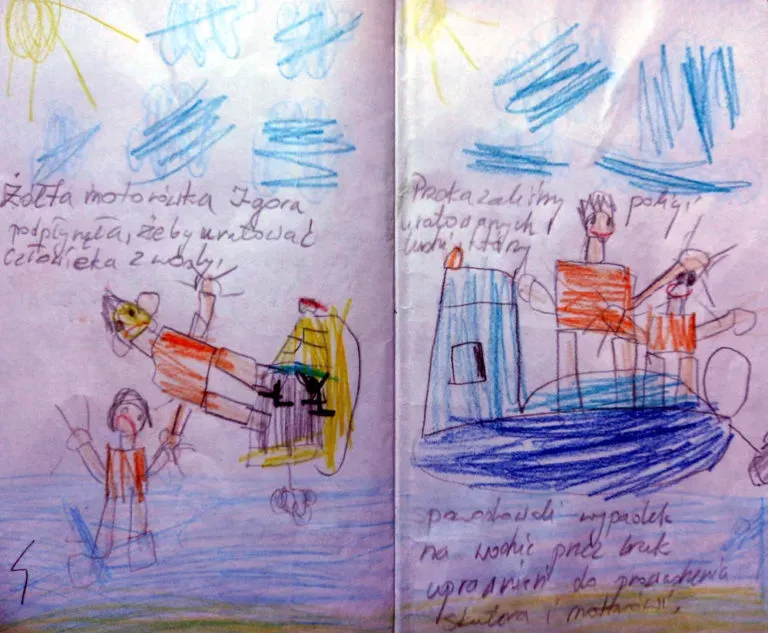 Żółta motorówka Igora
podpłynęła, żeby uratować
człowieka z wody.
Przekazaliśmy policji,
uratowanych
ludzi, którzy
spowodowali wypadek
na wodzie przez brak
uprawnień do prowadzenia
skutera i motorówki.